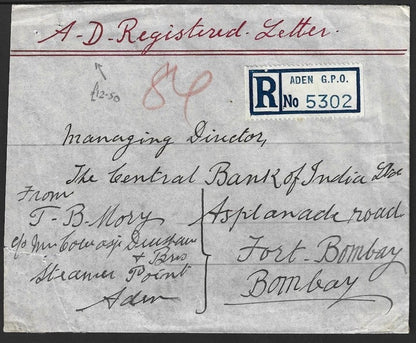 A-D-Registered-Letter.
£2-50
84
ADEN G.P.O.
R No 5302
Managing Director,
The Central Bank of India Ltd
Esplanade road
Fort-Bombay
Bombay
From
T-B-Mory
c/o Cowasji Dinshaw
& Bros
Steamer Point
Aden